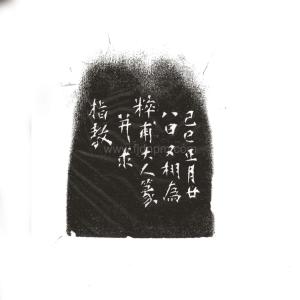 己巳正月廿
八日又栩為
粹甫大人篆
并求
指教